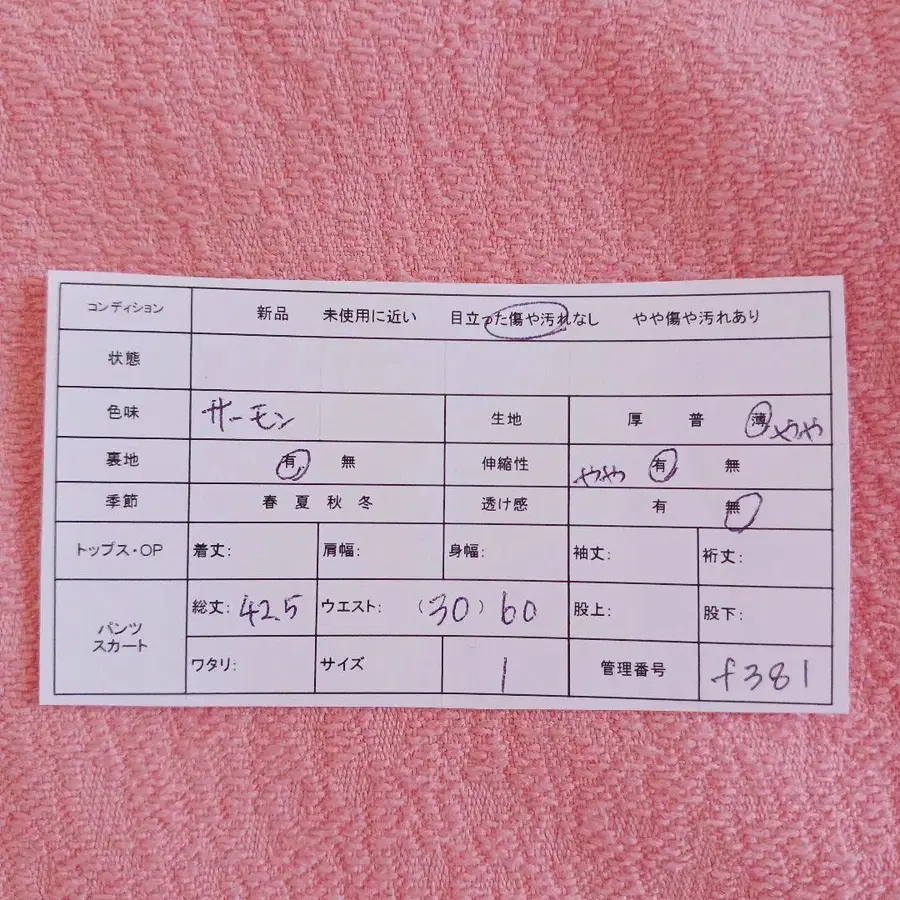 コンディション 新品 未使用に近い 目立った傷や汚れなし やや傷や汚れあり
状態
色味 サーモン 生地 厚 普 薄 やや
裏地 有 無 伸縮性 やや 有 無
季節 春 夏 秋 冬 透け感 有 無
トップス・OP 着丈: 肩幅: 身幅: 袖丈: 裄丈:
パンツ
スカート
総丈: 42.5 ウエスト: (30) 60 股上: 股下:
ワタリ: サイズ 1 管理番号 f381